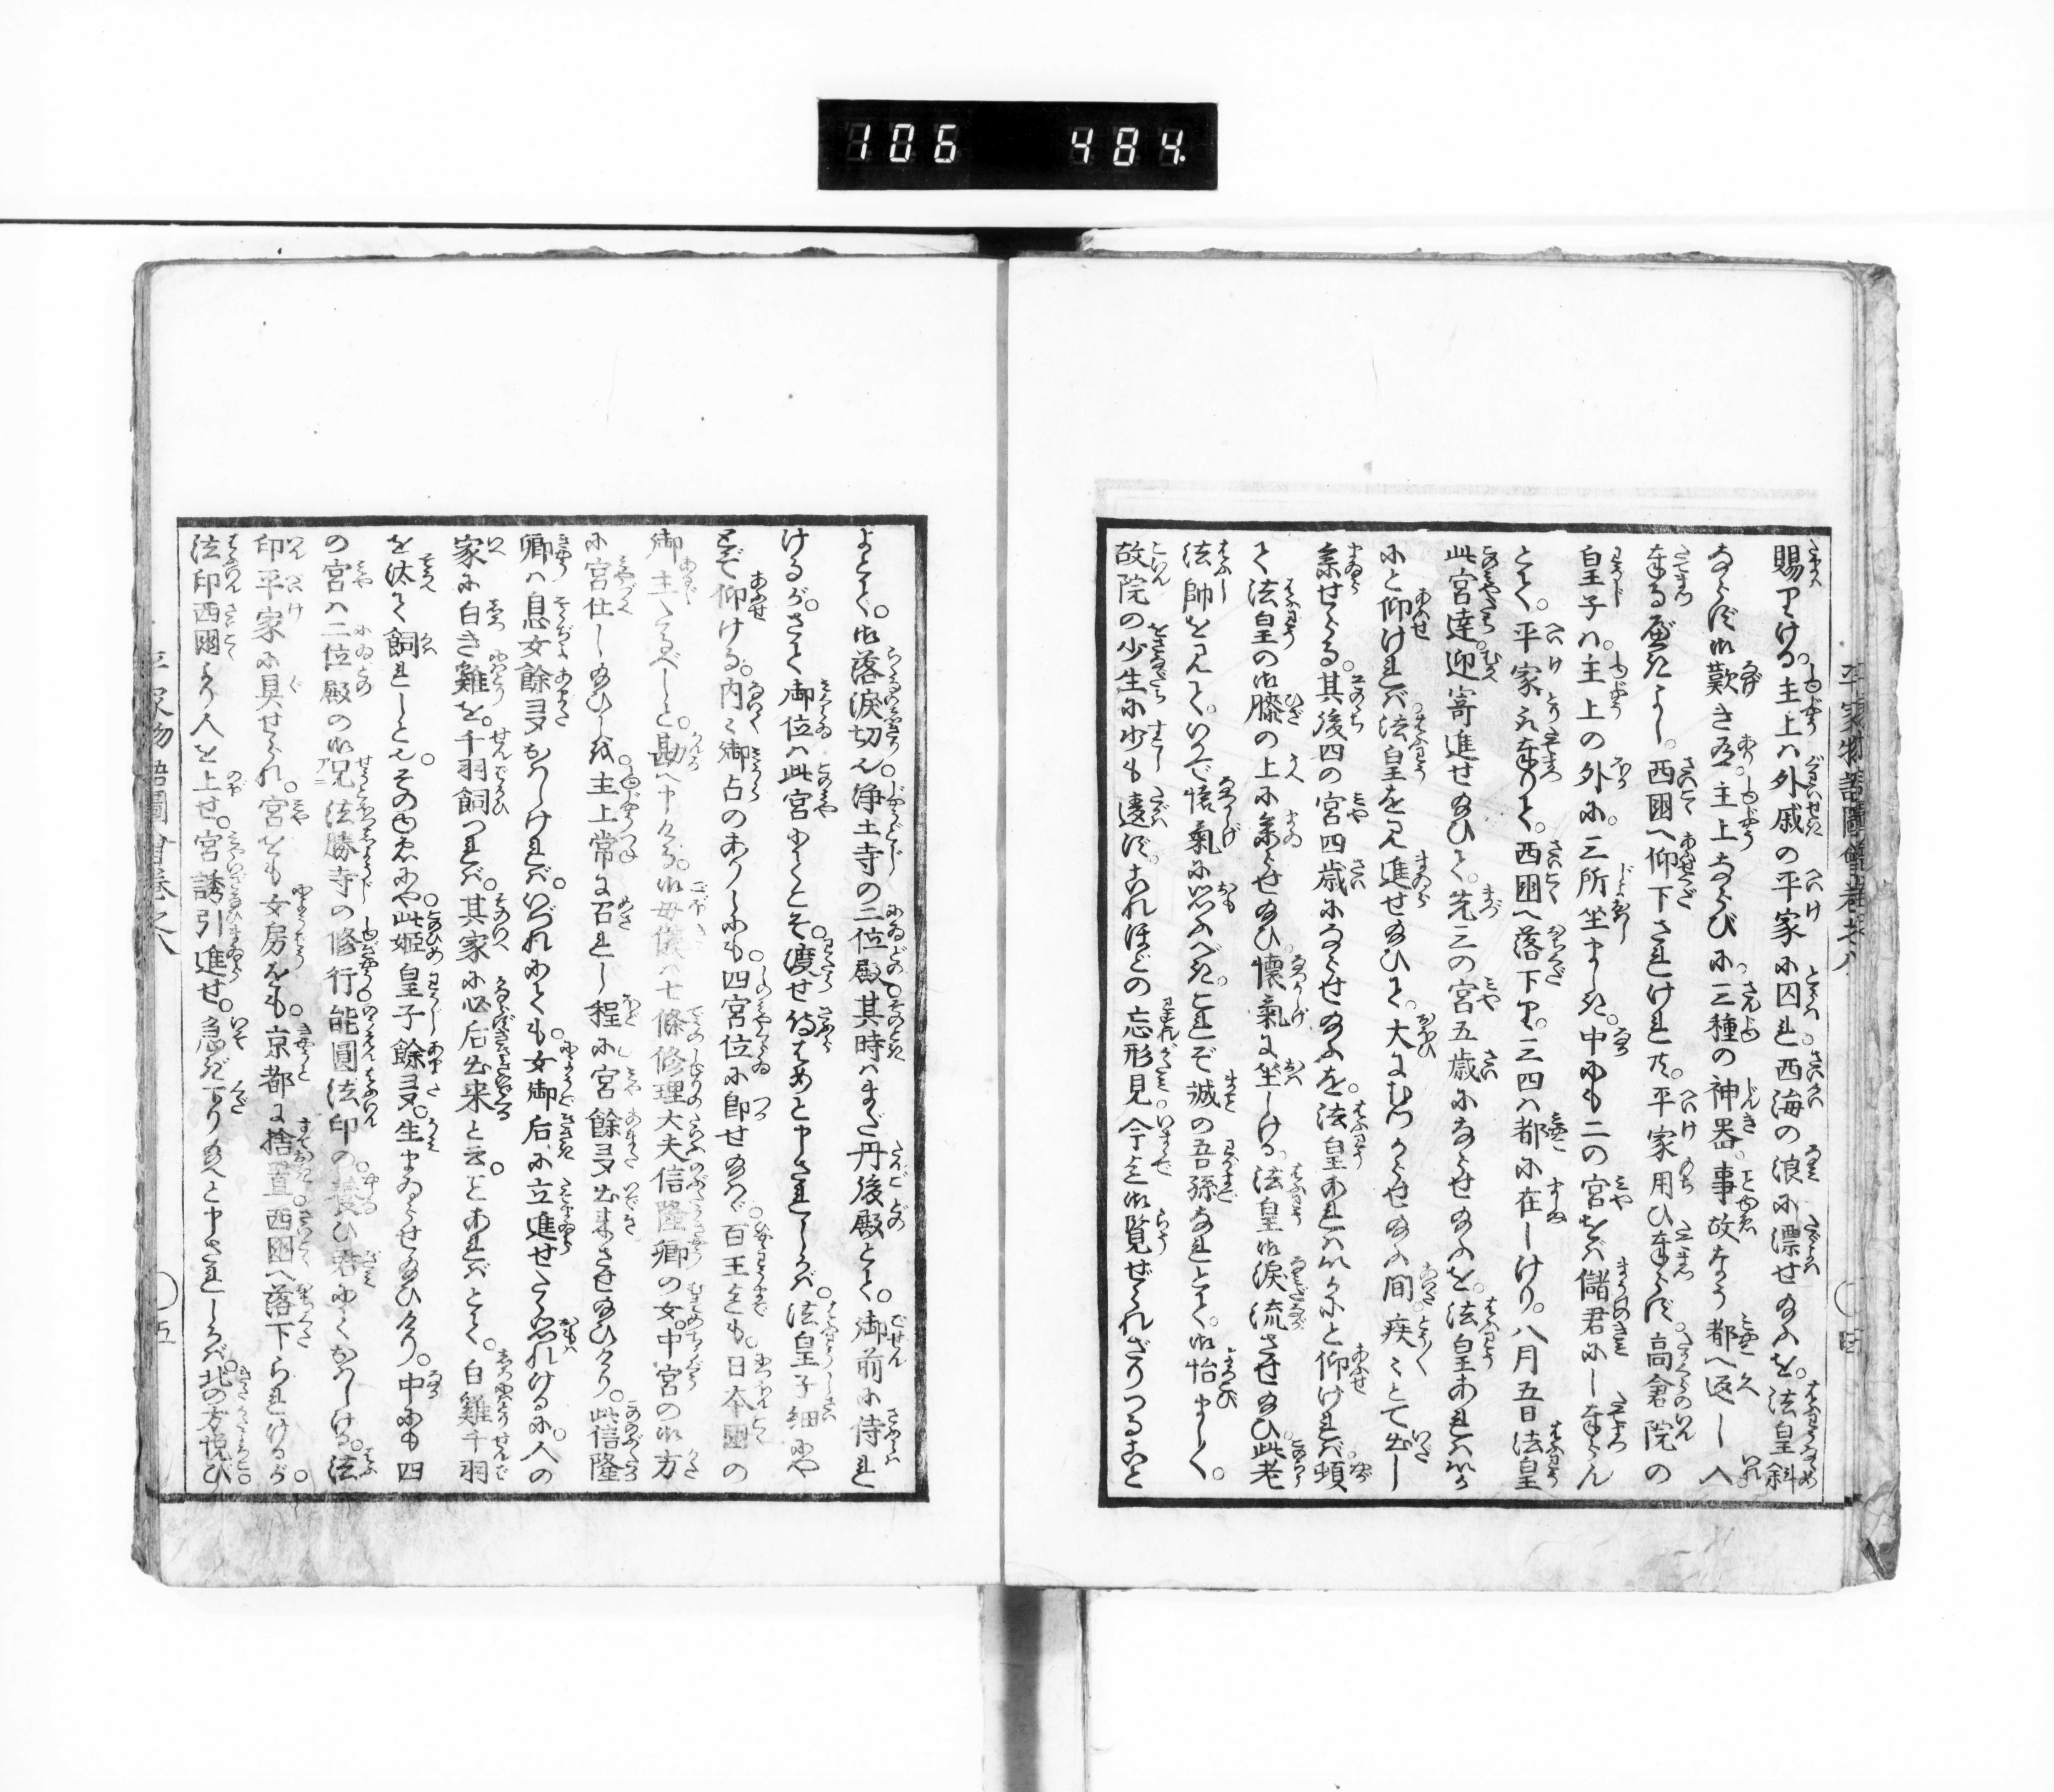 106 484
平家物語圖會巻之八 四
賜りける。主上ハ外戚の平家に囚れ西海の浪に漂せ給ふを。法皇斜
ならず御歎き有。主上ならびに三種の神器。事故なう都へ返し入
奉るべきよし。西国へ仰下されけれ共。平家用ひ奉らず。高倉院の
皇子ハ。主上の外に。三所坐ましき。中にも二の宮をバ儲君にし奉らん
とて。平家取奉りて。西国へ落下り。三四ハ都に在しけり。八月五日法皇
此宮達迎寄進せ給ひて。先三の宮五歳にならせ給ふを。法皇あれハいか
にと仰けれバ法皇を見進せ給ひて。大にむつからせ給ふ間疾々とて出し
参せらる。其後四の宮四歳にならせ給ふを。法皇あれハいかにと仰けれバ。頓
て法皇の御膝の上に参らせ給ひ。懐氣に坐しける。法皇御涙流させ給ひ。此老
法師を見て。いかで懐氣に思ふべき。これぞ誠の吾孫なれとて。御怡ましく。
故院の少生に少も違ず。これほどの忘形見今まで御覧ぜられざりつること
よとて。御落涙切也。浄土寺の二位殿。其時ハまだ丹後殿とて。御前に侍れ
けるが。さて御位ハ此宮にてこそ。渡せ給はめと申されしかバ。法皇子細にや
とぞ仰ける。内々御占のありしにも。四宮位に即せ給はゞ。百王までも。日本國の
御主たるべしと。勘へ申ける。御母儀ハ七條修理大夫信隆卿の女。中宮の御方
に宮仕し給ひしを。主上常に召れし程に宮餘多出来させ給ひけり。此信隆
卿ハ息女餘多おはしけれバ。いづれにても。女御后に立進せたく思れけるに。人の
家に白き鶏を。千羽飼つれバ。其家に必后出来と云。とあれバとて。白鶏千羽
を汰て飼れしとぞ。その故にや此姫皇子餘多。生まゐらせ給ひけり。中にも四
の宮ハ二位殿の御兄法勝寺の修行能圓法印の。養ひ君にておはしける。法
印平家に具せられ。宮をも女房をも。京都に捨置西国へ落下られけるが。
法印西國より人を上せ。宮誘引進せ。急ぎ下り給へと申されしかバ。北の方悦び
平家物語圖會巻之八 五